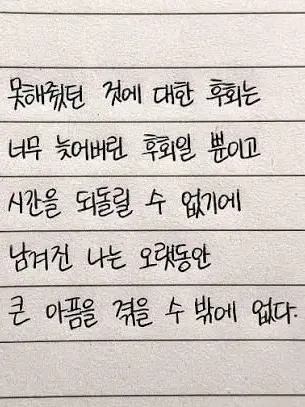 못해줬던 것에 대한 후회는
너무 늦어버린 후회일 뿐이고
시간을 되돌릴 수 없기에
남겨진 나는 오랫동안
큰 아픔을 겪을 수 밖에 없다.